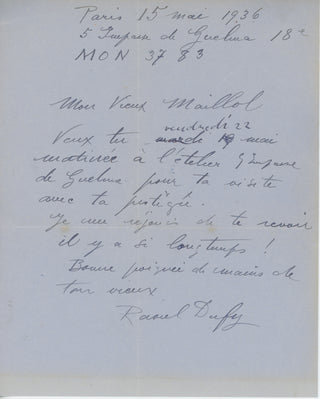 Paris 15 mai 1936
5 Impasse de Guelma 18e
MON 37 83
Mon Vieux Maillol
vendredi 22
Veux tu mardi 19 mai
matinée à l'atelier 5 Impasse
de Guelma pour ta visite
avec ta protégée.
Je me réjouis de te revoir
il y a si longtemps !
Bonne poignée de mains de
ton vieux
Raoul Dufy